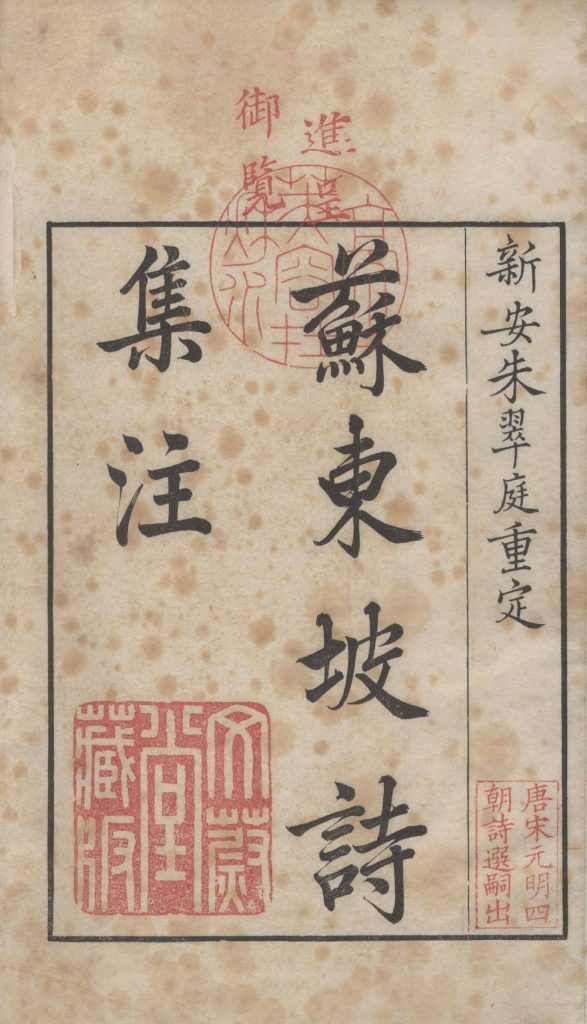 進呈
御覽
新安朱翠庭重定
蘇東坡詩
集注
唐宋元明四
朝詩選嗣出
文蔚
堂
藏版